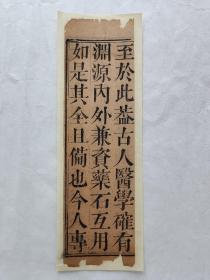 至於此葢古人醫學確有
淵源內外兼資藥石互用
如是其全且備也今人專